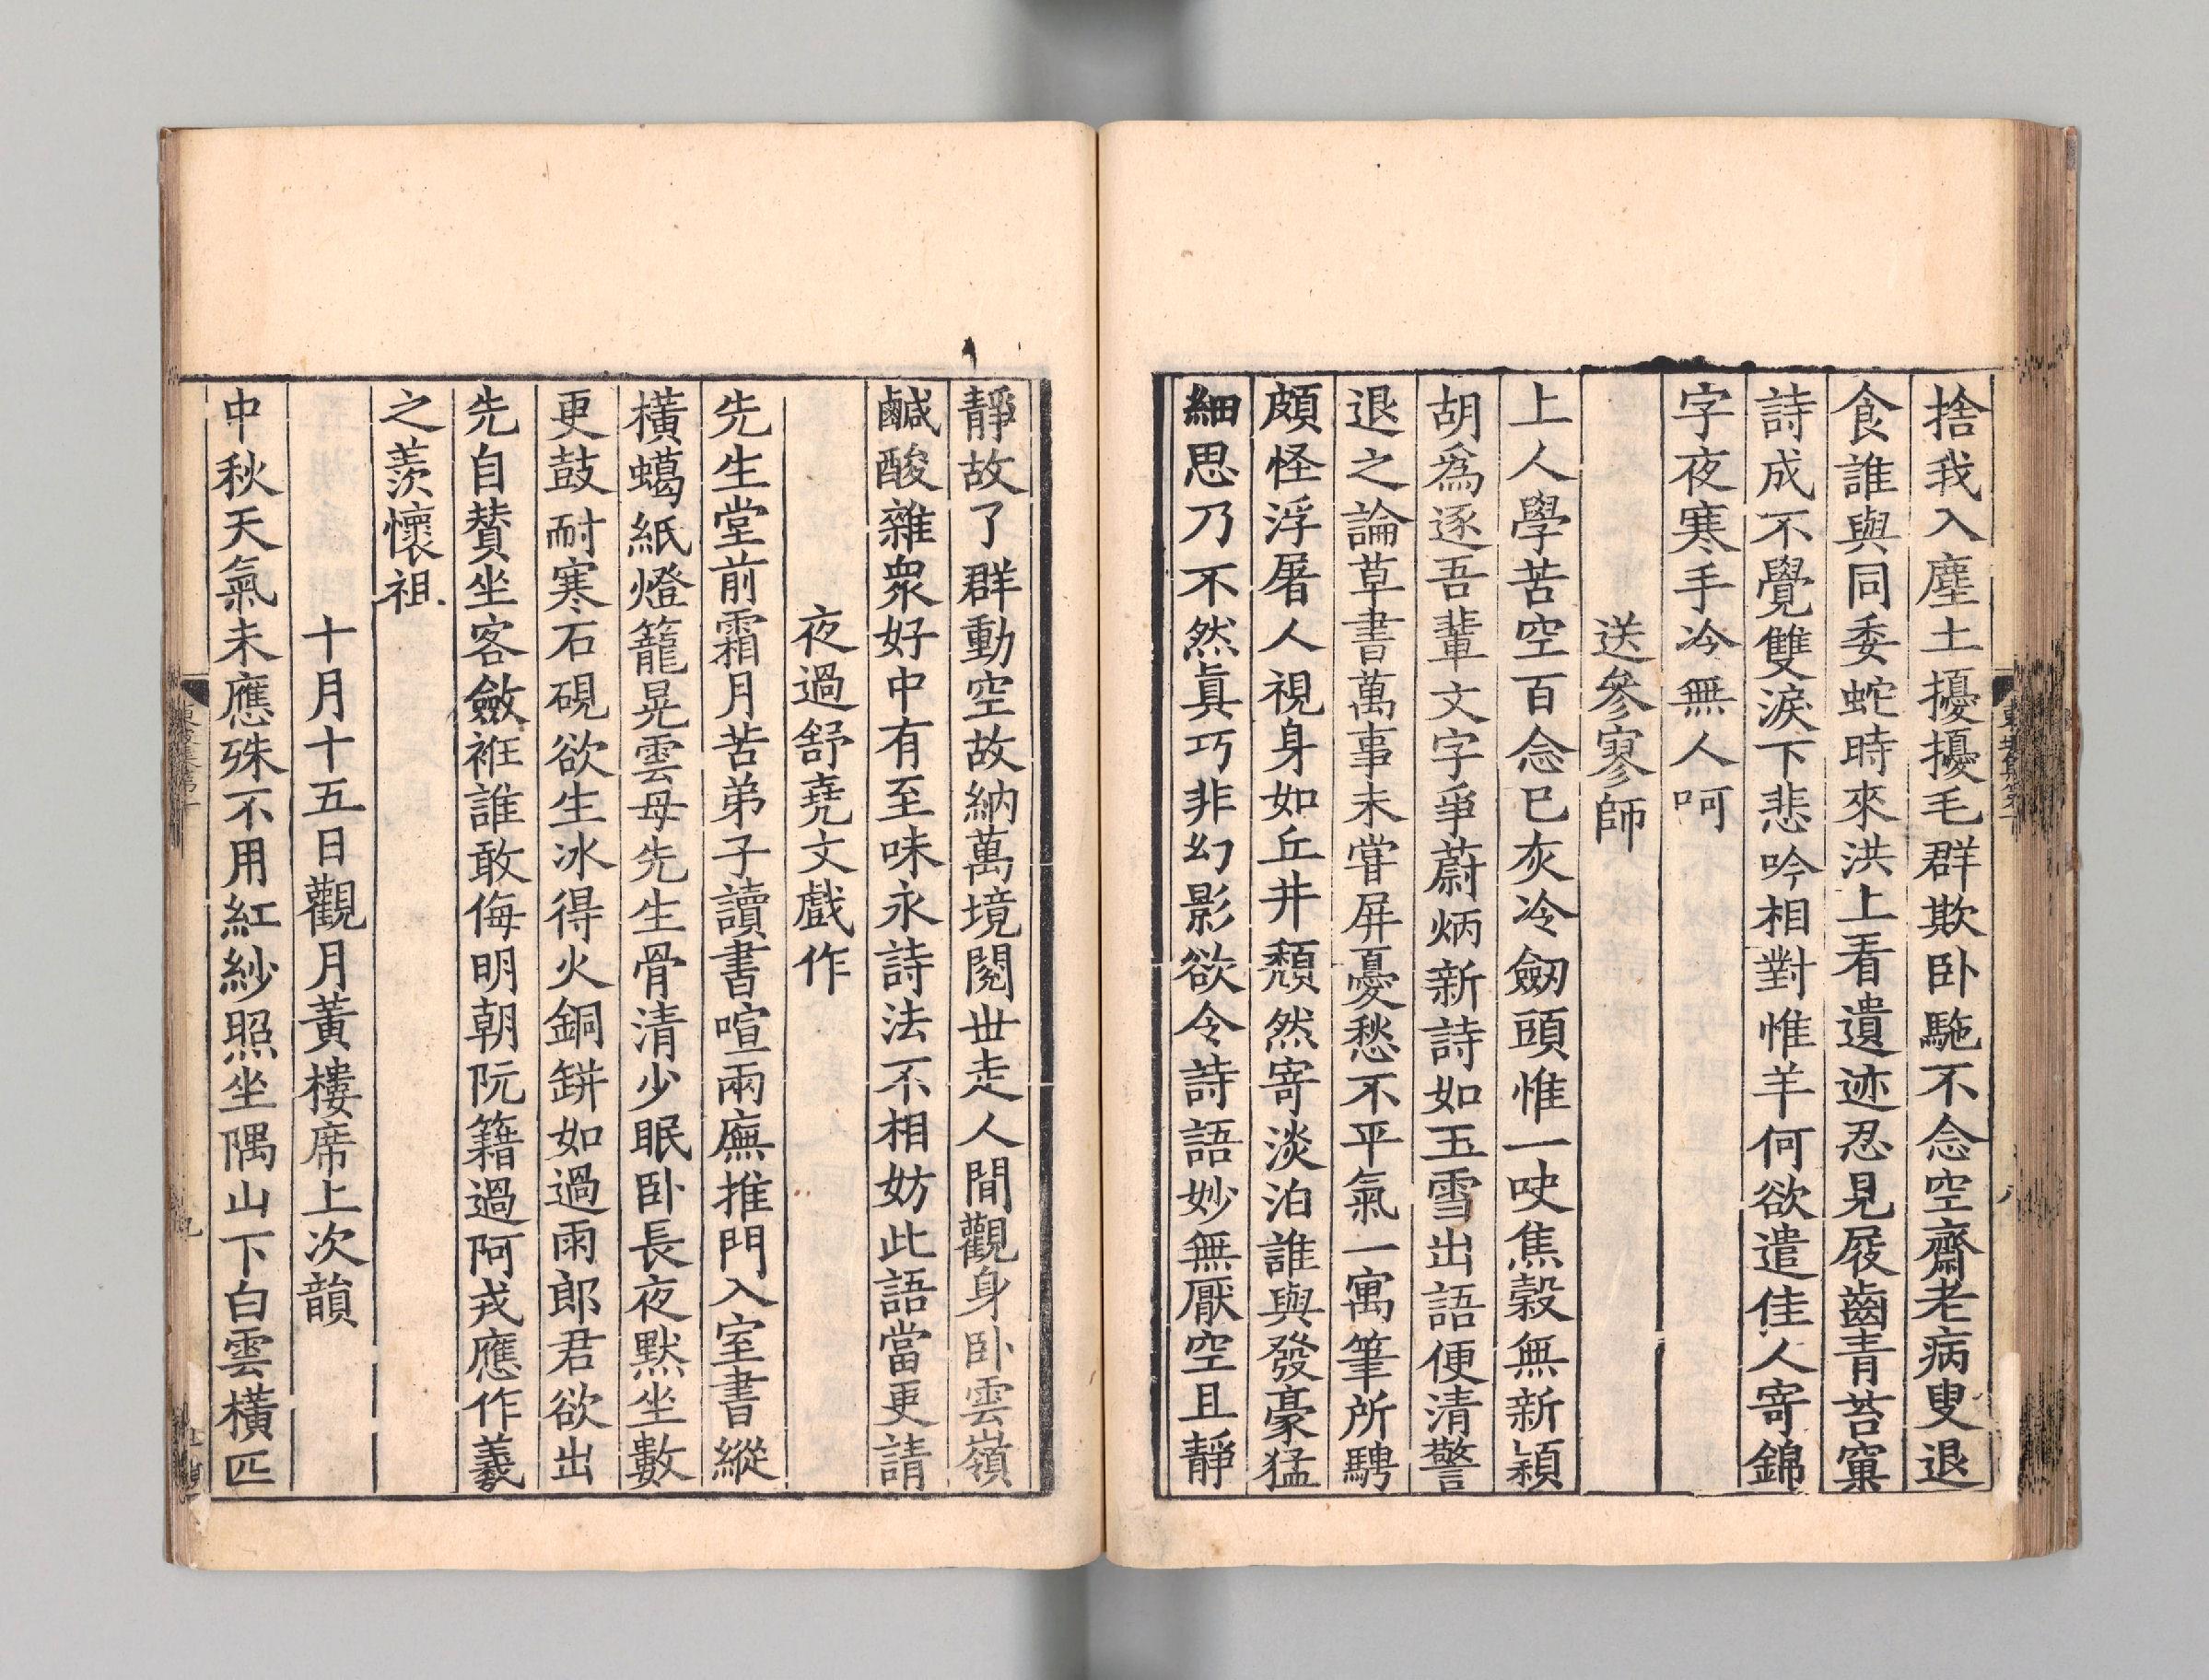 捨我入塵土擾擾毛群欺卧駞不念空齋老病叟退
食誰與同委蛇時來洪上看遺迹忍見屐齒青苔窠
詩成不覺雙淚下悲吟相對惟羊何欲遣佳人寄錦
字夜寒手冷無人呵
送參寥師
上人學苦空百念已灰冷劒頭惟一吷焦穀無新穎
胡爲逐吾輩文字爭蔚炳新詩如玉雪出語便清警
退之論草書萬事未甞屏憂愁不平氣一寓筆所騁
頗怪浮屠人視身如丘井頽然寄淡泊誰與發豪猛
細思乃不然眞巧非幻影欲令詩語妙無厭空且靜
靜故了群動空故納萬境閱丗走人間觀身卧雲嶺
鹹酸雜衆好中有至味永詩法不相妨此語當更請
夜過舒堯文戲作
先生堂前霜月苦弟子讀書喧兩廡推門入室書縱
橫蠟紙燈籠晃雲母先生骨清少眠卧長夜默坐數
更鼓耐寒石硯欲生冰得火銅缾如過雨郎君欲出
先自贊坐客斂衽誰敢侮明朝阮籍過阿戎應作羲
之羨懷祖
十月十五日觀月黃樓席上次韻
中秋天氣未應殊不用紅紗照坐隅山下白雲橫匹
東坡集第十
八
九